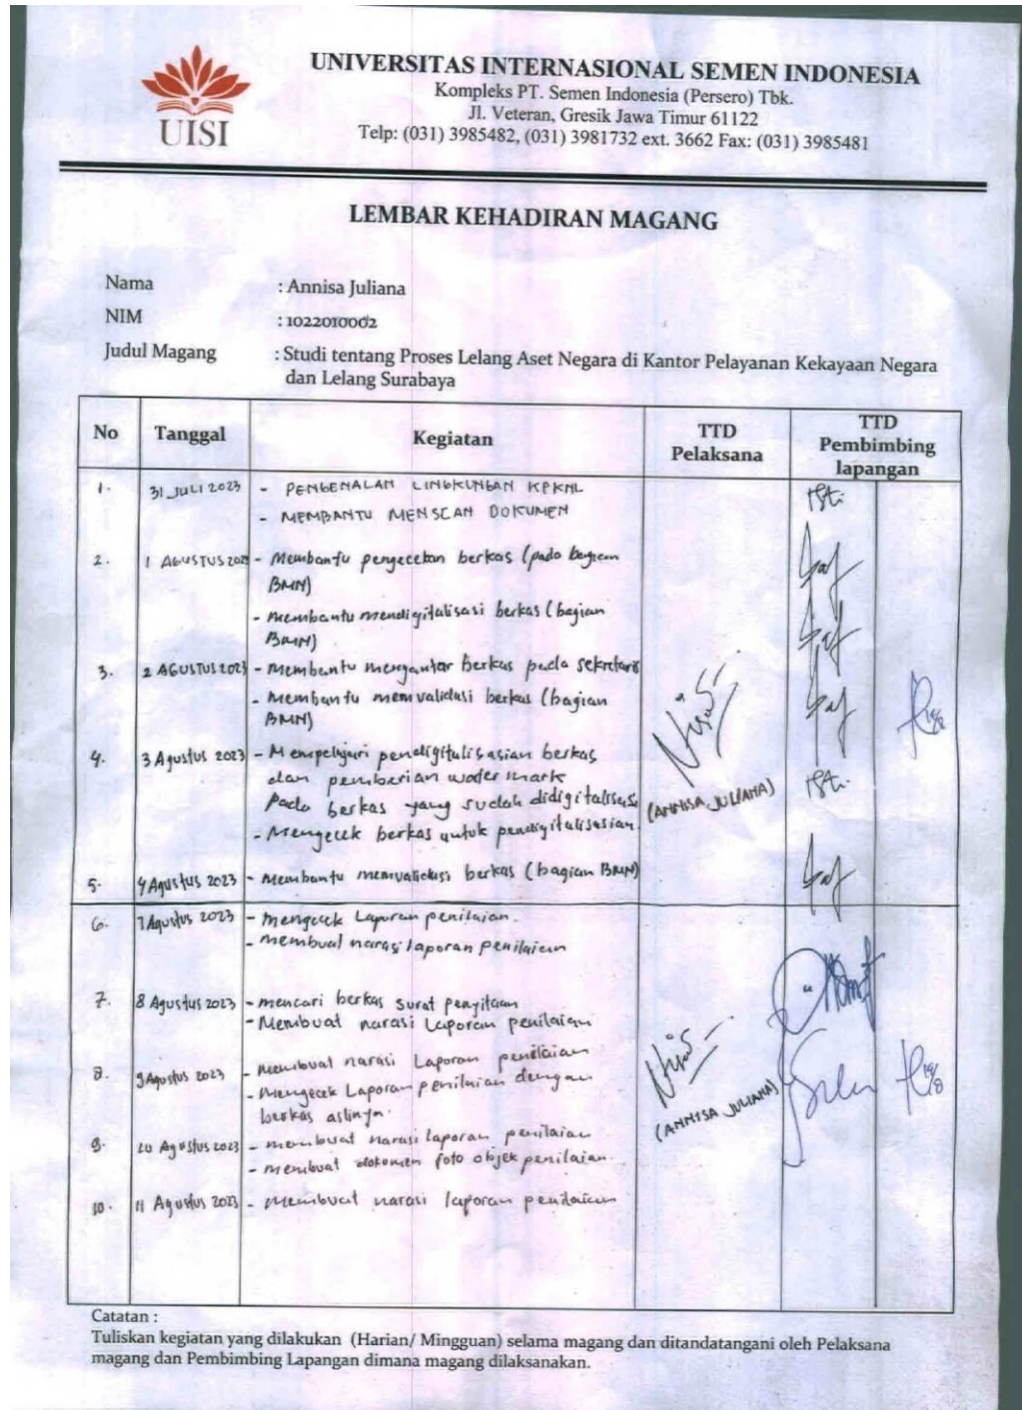 UISI
UNIVERSITAS INTERNASIONAL SEMEN INDONESIA
Kompleks PT. Semen Indonesia (Persero) Tbk.
Jl. Veteran, Gresik Jawa Timur 61122
Telp: (031) 3985482, (031) 3981732 ext. 3662 Fax: (031) 3985481
LEMBAR KEHADIRAN MAGANG
Nama : Annisa Juliana
NIM : 1022010002
Judul Magang : Studi tentang Proses Lelang Aset Negara di Kantor Pelayanan Kekayaan Negara
dan Lelang Surabaya
No Tanggal Kegiatan TTD Pelaksana TTD Pembimbing lapangan
1. 31 JULI 2023 - PENGENALAN LINGKUNGAN KPKNL
- MEMBANTU MENSCAN DOKUMEN
2. 1 AGUSTUS 2023 - Membantu pengecekan berkas (pada bagian
BMN)
- Membantu mendigitalisasi berkas (bagian
BMN)
3. 2 AGUSTUS 2023 - Membantu mengantar berkas pada sekretaris
- Membantu memvalidasi berkas (bagian
BMN)
4. 3 Agustus 2023 - Mempelajari pendigitalisasian berkas
dan pemberian water mark
pada berkas yang sudah didigitalisasi
- Mengecek berkas untuk pendigitalisasian.
(ANNISA JULIANA)
5. 4 Agustus 2023 - Membantu memvalidasi berkas (bagian BMN)
6. 7 Agustus 2023 - Mengecek Laporan penilaian.
- membuat narasi laporan penilaian
7. 8 Agustus 2023 - mencari berkas surat penyitaan
- Membuat narasi Laporan penilaian
8. 9 Agustus 2023 - Membuat narasi Laporan penilaian
- Mengecek Laporan penilaian dengan
berkas aslinya.
(ANNISA JULIANA)
9. 10 Agustus 2023 - membuat narasi laporan penilaian
- membuat dokumen foto objek penilaian.
10. 11 Agustus 2023 - Membuat narasi laporan penilaian
Catatan :
Tuliskan kegiatan yang dilakukan (Harian/ Mingguan) selama magang dan ditandatangani oleh Pelaksana
magang dan Pembimbing Lapangan dimana magang dilaksanakan.